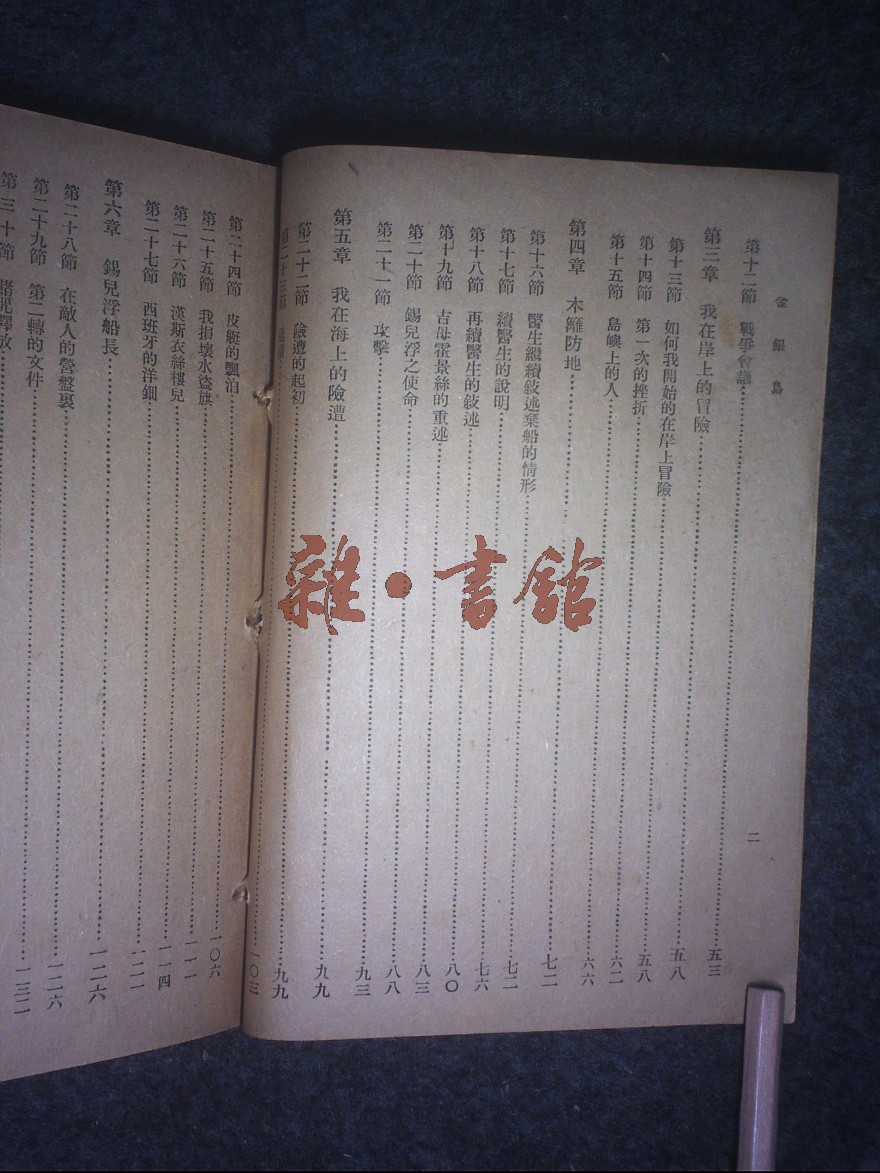 金銀島
二
第十二節 戰爭會議……五三
第三章 我在岸上的冒險……五八
第十三節 如何我開始的在岸上冒險……五八
第十四節 第一次的挫折……六二
第十五節 島嶼上的人……六六
第四章 木籬防地……七二
第十六節 醫生繼續敍述棄船的情形……七二
第十七節 續醫生的說明……七六
第十八節 再續醫生的敍述……八〇
第十九節 吉母霍景絲的重述……八三
第二十節 錫兒浮之使命……八八
第二十一節 攻擊……九三
第五章 我在海上的險遭……九九
第二十二節 險遭的起初……九九
第二十三節……一〇三
第二十四節 皮艇的飄泊……一〇六
第二十五節 我損壞水盜旗……一一一
第二十六節 漢斯衣絲樓兒……一一四
第二十七節 西班牙的洋鈿……一二一
第六章 錫兒浮船長……一二六
第二十八節 在敵人的營盤裏……一二六
第二十九節 第二轉的文件……一三二
第三十節 賭咒釋放
雜·書館